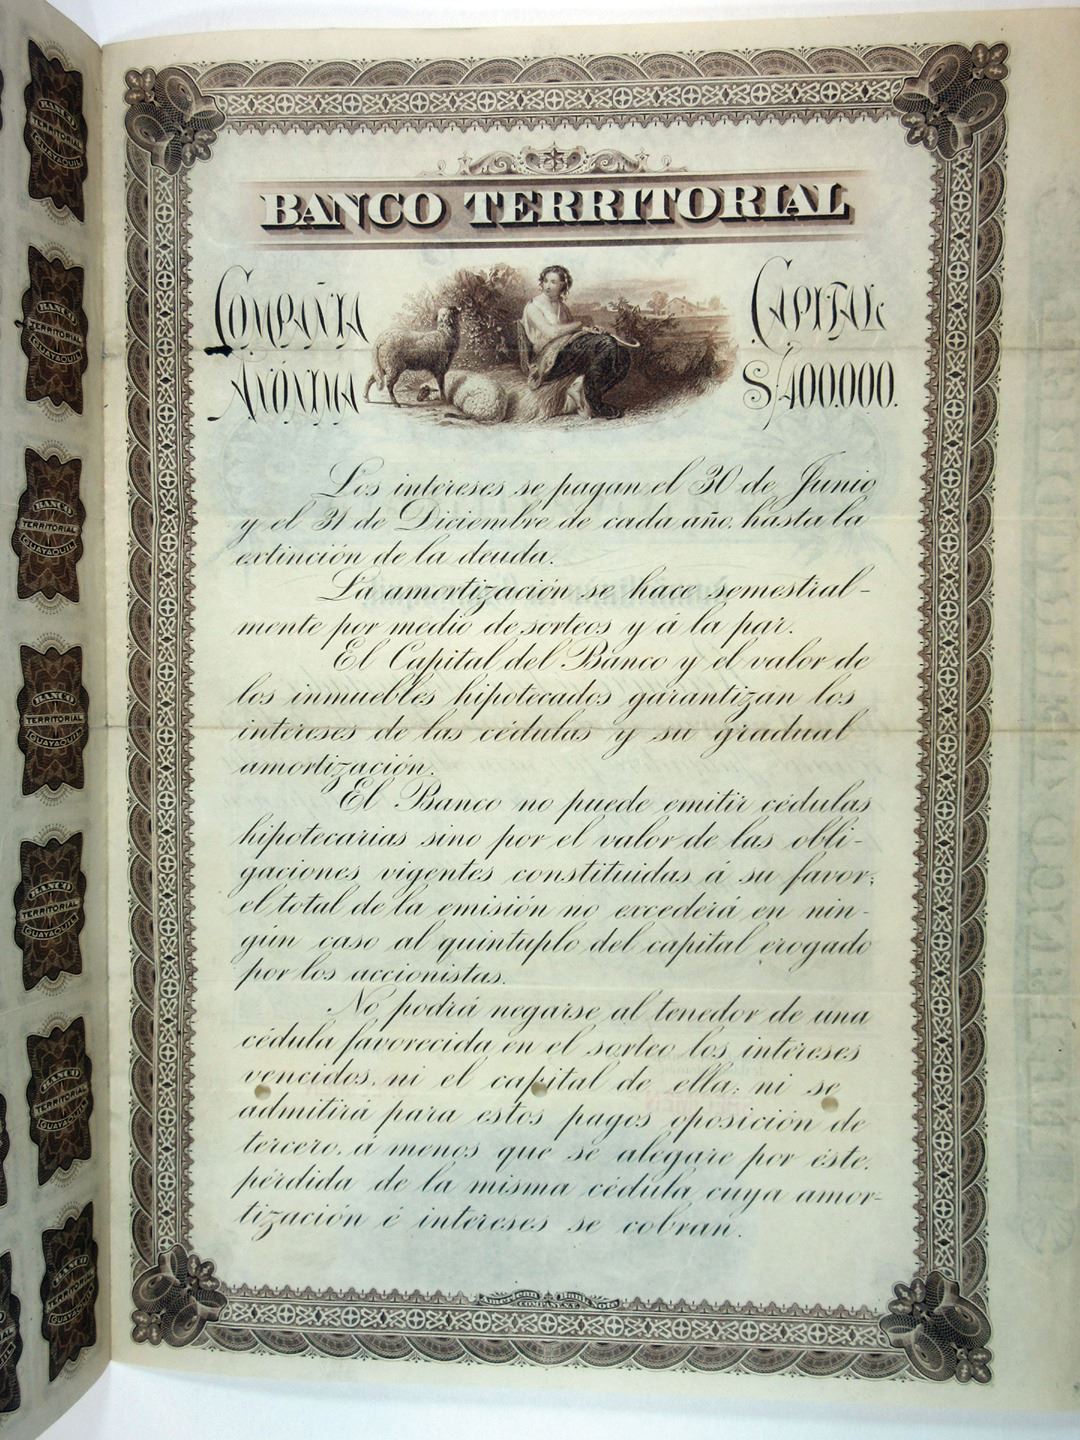 BANCO TERRITORIAL
COMPAÑIA
ANÓNIMA
CAPITAL
S/400.000.
Los intereses se pagan el 30 de Junio
y el 31 de Diciembre de cada año, hasta la
extinción de la deuda.
La amortización se hace semestral-
mente por medio de sorteos y á la par.
El Capital del Banco y el valor de
los inmuebles hipotecados garantizan los
intereses de las cédulas y su gradual
amortización.
El Banco no puede emitir cédulas
hipotecarias sino por el valor de las obli-
gaciones vigentes constituidas á su favor;
el total de la emisión no excederá en nin-
gún caso al quintuplo del capital erogado
por los accionistas.
No podrá negarse al tenedor de una
cédula favorecida en el sorteo los intereses
vencidos, ni el capital de ella; ni se
admitirá para estos pagos oposición de
tercero, á menos que se alegare por éste,
pérdida de la misma cédula cuya amor-
tización é intereses se cobran.
American Bank Note
COMPANY, N.Y.
BANCO
TERRITORIAL
GUAYAQUIL
BANCO
TERRITORIAL
GUAYAQUIL
BANCO
TERRITORIAL
GUAYAQUIL
BANCO
TERRITORIAL
GUAYAQUIL
BANCO
TERRITORIAL
GUAYAQUIL
BANCO
TERRITORIAL
GUAYAQUIL
BANCO
TERRITORIAL
GUAYAQUIL